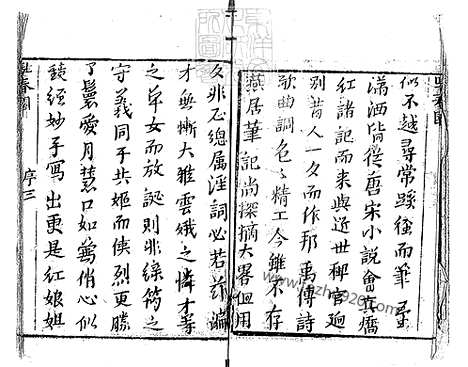 似不越尋常蹊徑而筆墨
瀟洒皆從唐宋小說會真嬌
紅諸記而来與近世稗官逈
別昔人一夕而作那禹傳詩
歌曲調色〻精工今雖不存
燕居筆記尚採摘大畧但用
久非尼總屬淫詞必若茲編
才無慚大雅雲娥之憐才等
之卓女而放誕則非綠筠之
守義同于共姬而俠烈更勝
了鬟愛月慧口如鶯俏心似
讀經妙手寫出更是紅娘姐
序三